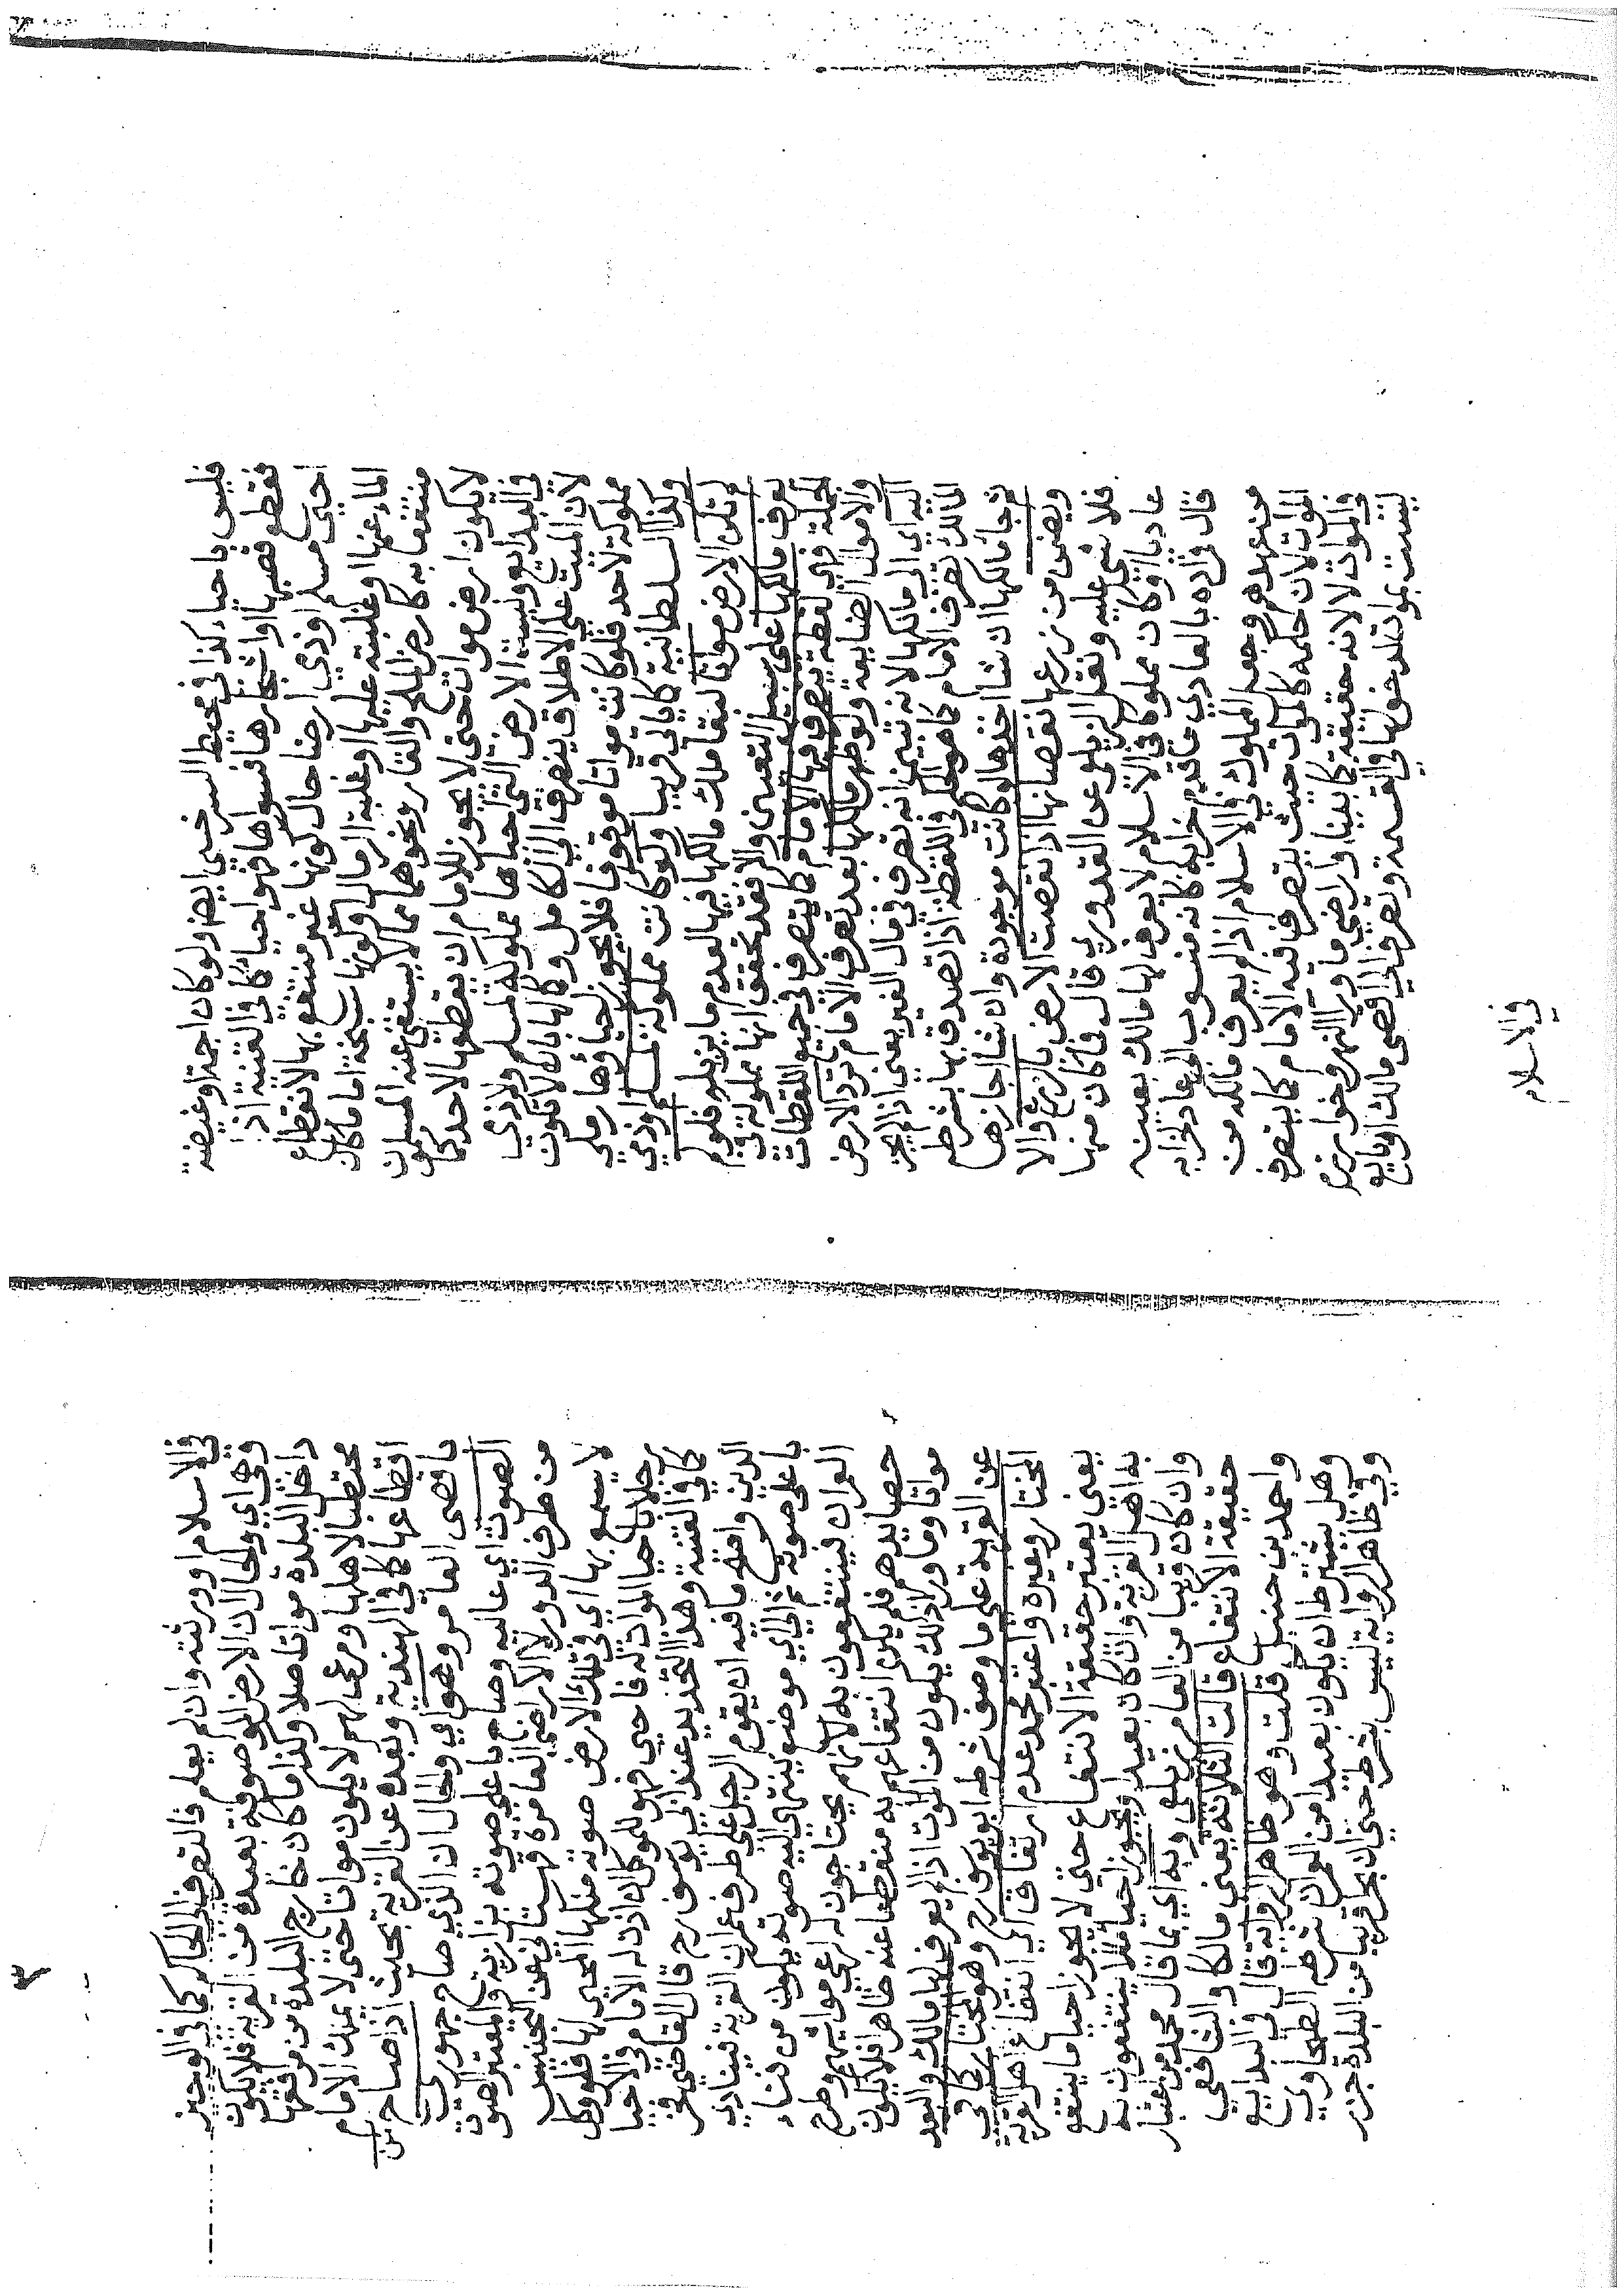 فليس باحياء كذا في محيط السرخسي ايضا ولو كان اجمة او غيضة
فقطع قصبها او اشجارها فسواها فهو احياء كما في القنية اذا
احيى مسلم او ذمي ارضا حال كونها غير منتفع بها لانقطاع
الماء عنها او غلبته عليها او غلبة الرمال او كونها سبخة اما ما كان
منتفعا به كارض الملح والقار ونحوهما مما لا يستغني عنه المسلمون
لا يكون ارض موات حتى لا يجوز للامام ان يقطعها لاحد كما
في البدايع ونسبة الارض التي احياها مملوكة لمسلم او ذمي
لان الميت على الاطلاق ينصرف الى الكامل وكمالها بان لا تكون
مملوكة لاحد فلو كانت مواتا موقوفا فلا يجوز احياؤها رملي
وكذا السلطانية كما ياتي قريبا ولو كانت مملوكة لمسلم او ذمي
لم تكن الارض مواتا لبقا ملك مالكها فيها لعدم ما يزيله فلو لم
يعرف مالكها على سبيل التعيين والا فقد تحقق انها مملوكة في
الجملة فهي لقطة يتصرف فيها الامام كما يتصرف في جميع اللقطات
والاموال الضايعة ولو ظهر مالكها بعد تصرف الامام ترد الارض
اليه اي الى مالكها لانه تبين انه تصرف في مال الغير يعني اذا لم يجز
المالك تصرف الامام كما هو الحكم في اللقطة اذا تصدق بها بشرط
ثم جا مالكها ان شا اخذها لو كانت موجودة وان شا اجاز هـ
ويضمن من زرعها نقصانها اذا نقصت الارض بالزرع والا
فلا شي عليه ونقل الزيلعي عن القدوري قال فما كان منها
عاديا او كان مملوكا في الاسلام لا يعرف لها مالك بعينه
قال في اده بالعادي ما قدم خرابه كانه منسوب الى عاد لخرابه
من عهدهم وجعل المملوك في الاسلام اذا لم يعرف مالكه من
الموات لان حكمه كالموات حيث يتصرف فيه الامام كما يتصرف
في الموات لا لانه حقيقة كما بينا واراضي ما ورا النهر وخوارزم
ليست بموات لدخولها في القسمة وتصرف الى اقصى مالك او بايع
في الاسلام
في الاسلام او ورثته وان لم يعلم فالتصرف الى الحاكم كما في الوجيز
وهي اي والحال ان الارض الموصوفة بعيدة من القرية فلا يكون
داخل البلدة مواتا اصلا وكذا ما كان خارج البلدة من مرافقها
محتطبا لاهلها ومرعى لهم لا يكون مواتا حتى لا يملك الامام
اقطاعها كما في الهندية وبعده عن القرية بحيث اذا صاح من
باقصى العامر وهو اي والحال ان الذي صاح جهوري
الصوت اي عاليه وصاح باعلى صوته بزازية والمعتبر الصوت
من طرف الدور لا الاراضي العامرة قهستاني عن التجنيس
لا يسمع بها اي في تلك الارض صوته ملكها المحيي لها فلو وكل
رجلا باحيا الموات له فاحيي فهو للموكل ان اذن له الامام في الاحيا
كما في القنية وهذا التحديد عند ابي يوسف رح قال القاضي فخر
الدين واصح ما فيه ان يقوم الرجل على طرف عمران القرية فينادي
باعلى صوته ثم الى اي موضع ينتهي اليه صوته يكون من فناء
العمران فينتفعون به لانهم يحتاجون له لرعي مواشيهم وطرح
حصايدهم فلم يكن انتفاعهم به منقطعا عنه ظاهرا فلا يكون
مواتا وما ورا ذلك يكون من الموات اذا لم يعرف لها مالك والبعد
عن القرية على ما وصف شرطه ابو يوسف رح وهو المختار كما في
المختار وغيره واعتبر محمد عدم ارتفاق اي انتفاع اهل القرية
يعني يعتبر حقيقة الانتفاع حتى لا يجوز احيا ما ينتفع
به اهل القرية وان كان بعيدا ويجوز احيا ما لا ينتفعون به
وان كان قريبا من العامر زيلعي وبه اي بما قال محمد من اعتبار
حقيقة الانتفاع قالت الثلاثة يعني مالكا والشافعي
واحمد بن حنبل قلت وهو ظاهر الرواية قال في البدايع
وهل يشترط ان يكون بعيدا من العمران شرطه الطحاوي
وفي ظاهر الرواية ليس بشرط حتى ان بحرا قريبا من البلدة جزر